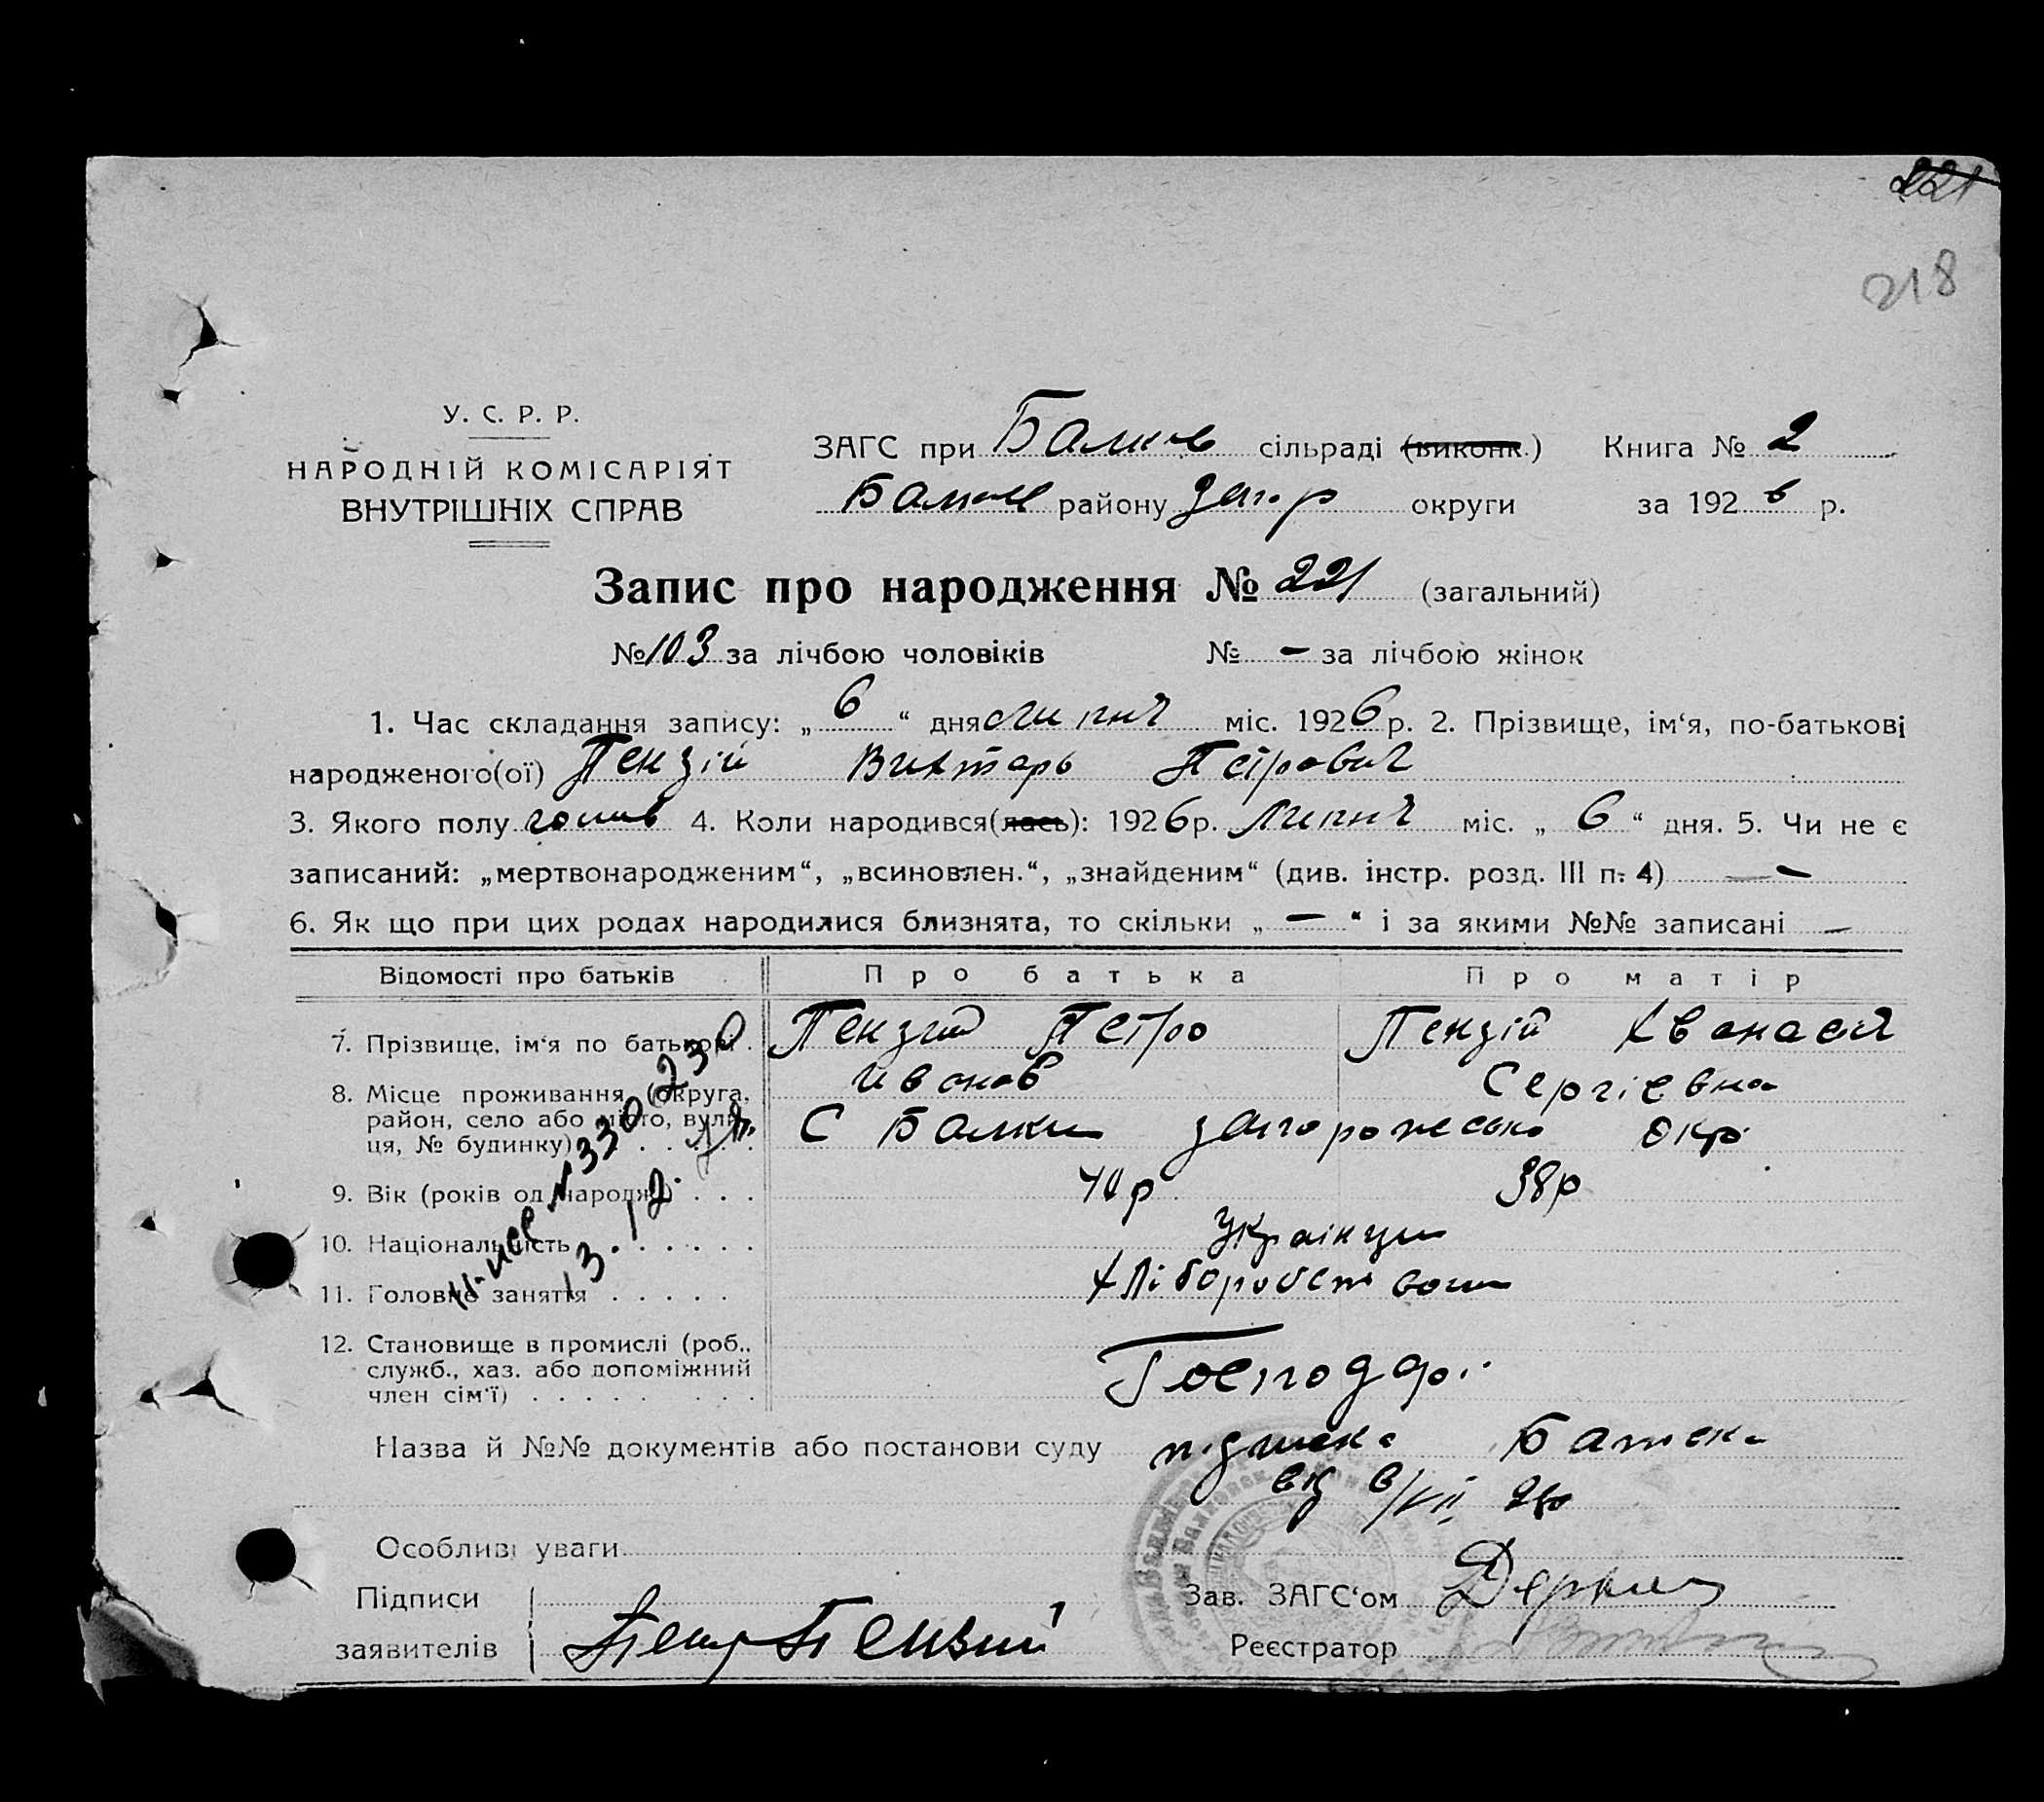 221
218
У. С. Р. Р.
НАРОДНІЙ КОМІСАРІЯТ
ВНУТРІШНІХ СПРАВ
ЗАГС при Балків сільраді (виконк.) Книга № 2
району Запор округи за 1926 р.
Запис про народження № 221 (загальний)
№ 103 за лічбою чоловіків № — за лічбою жінок
1. Час складання запису: „ 6 “ дня липня міс. 1926 р. 2. Прізвище, ім‘я, по-батькові
народженого(ої) Пензій Виктарь Петрович
3. Якого полу 4. Коли народився(лась): 1926р. Липня міс. „ 6 “ дня. 5. Чи не є
записаний: „мертвонародженим“, „всиновлен.“, „знайденим“ (див. інстр. розд. III п. 4) —
6. Як що при цих родах народилися близнята, то скільки „ — “ і за якими №№ записані —
Відомості про батьків Про батька Про матір
7. Прізвище, ім‘я по батькові . Пензий Петро Пензій Хванасия
Иванов Сергієвна
8. Місце проживання (округа,
район, село або місто, вули-
ця, № будинку) . . . . . С Балки запорожсько окр.
9. Вік (років од народж.) . . . 40р 38р
10. Національність . . . . . . Українцы
11. Головне заняття . . . . .
12. Становище в промислі (роб.,
служб., хаз. або допоміжний
член сім‘ї) . . . . . . . . Господарі
Назва й №№ документів або постанови суду Батька
від 6/VII 26
Особливі уваги
Підписи
заявителів Пензий
Зав. ЗАГС‘ом
Реєстратор
№ 330230
13.12.